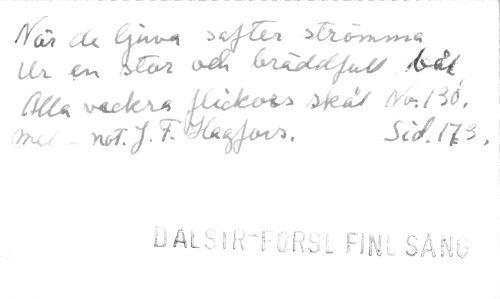 När de ljuva safter strömma
Ur en stor och bräddfull bål
Alla vackra flickors skål No. 130.
mel - not. J. F. Hagfors. Sid. 173.
DALSTR-FORSL FINL SÅNG